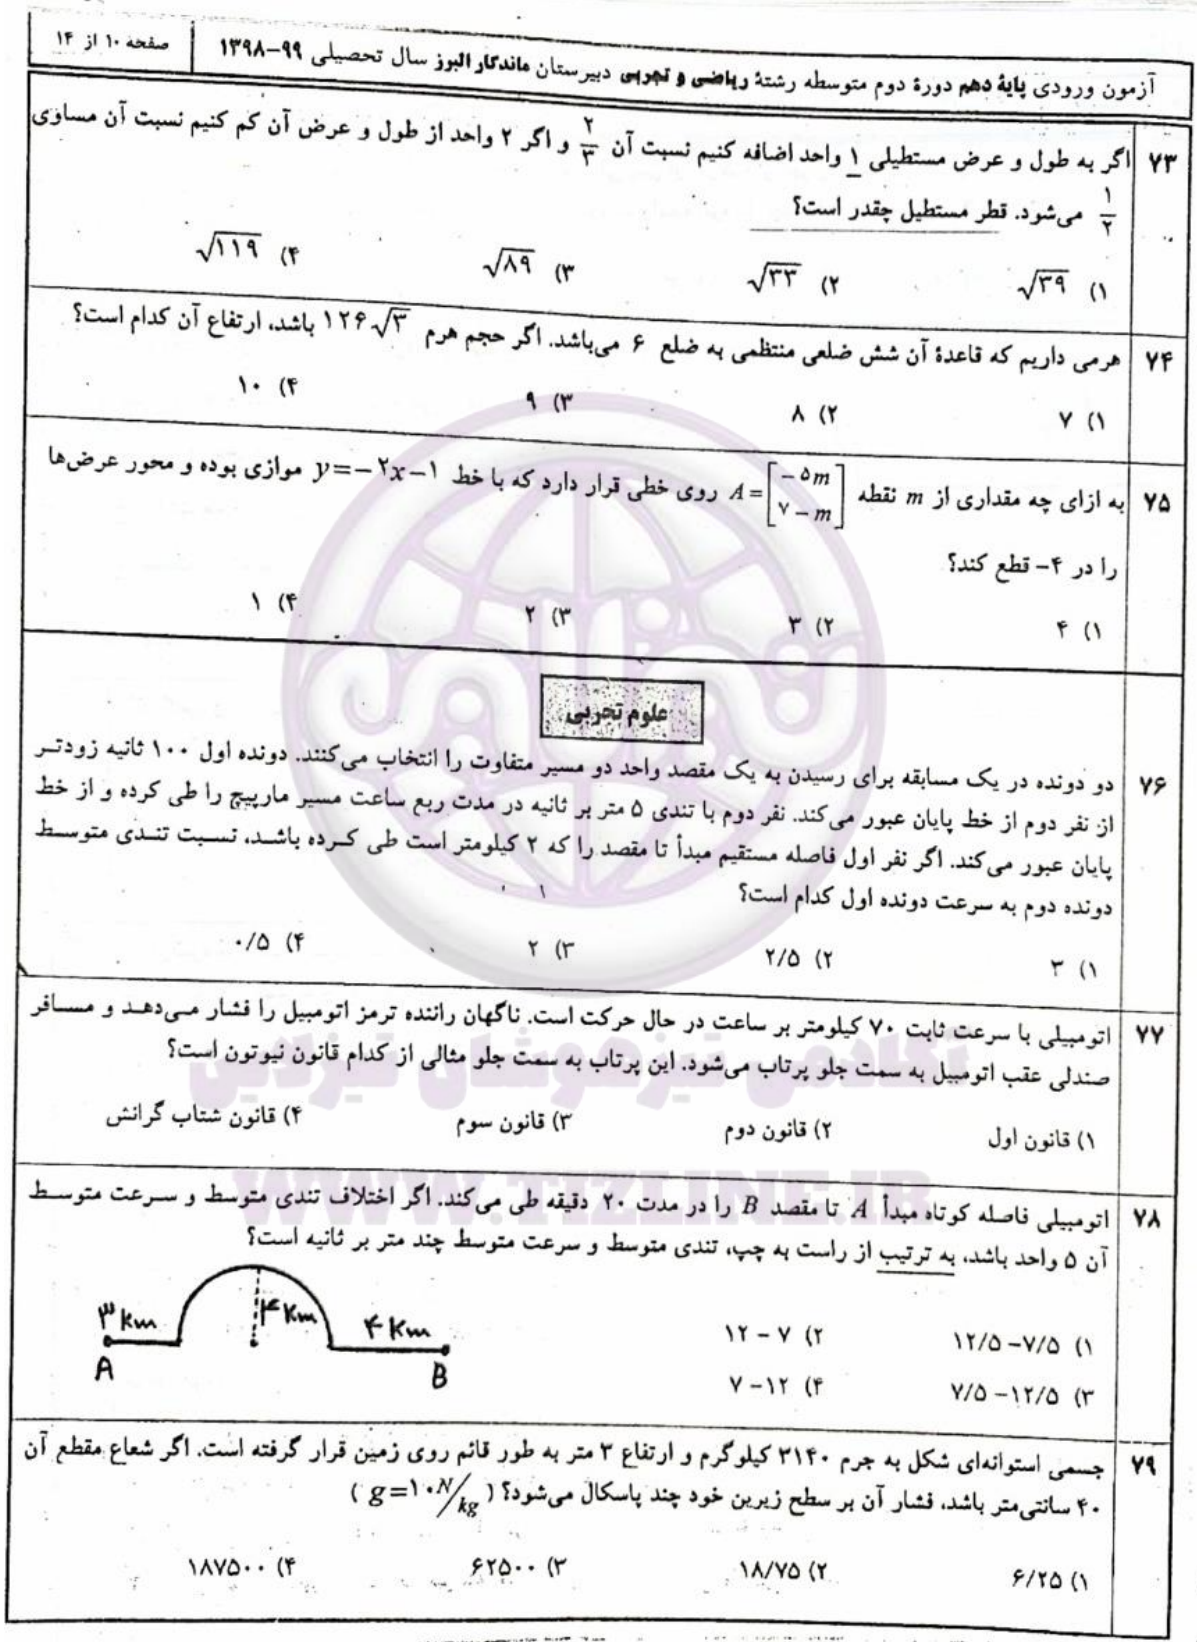 آزمون ورودی پایهٔ دهم دورهٔ دوم متوسطه رشتهٔ ریاضی و تجربی دبیرستان ماندگار البرز سال تحصیلی ۹۹-۱۳۹۸
صفحه ۱۰ از ۱۴
۷۳ اگر به طول و عرض مستطیلی ۱ واحد اضافه کنیم نسبت آن ۲/۳ و اگر ۲ واحد از طول و عرض آن کم کنیم نسبت آن مساوی
۱/۲ می‌شود. قطر مستطیل چقدر است؟
۱) √۳۹ ۲) √۳۳ ۳) √۸۹ ۴) √۱۱۹
۷۴ هرمی داریم که قاعدهٔ آن شش ضلعی منتظمی به ضلع ۶ می‌باشد. اگر حجم هرم ۱۲۶√۳ باشد، ارتفاع آن کدام است؟
۱) ۷ ۲) ۸ ۳) ۹ ۴) ۱۰
۷۵ به ازای چه مقداری از m نقطه A=[-۵m ۷-m] روی خطی قرار دارد که با خط y=-۲x-۱ موازی بوده و محور عرض‌ها
را در ۴- قطع کند؟
۱) ۴ ۲) ۳ ۳) ۲ ۴) ۱
علوم تجربی
۷۶ دو دونده در یک مسابقه برای رسیدن به یک مقصد واحد دو مسیر متفاوت را انتخاب می‌کنند. دونده اول ۱۰۰ ثانیه زودتر
از نفر دوم از خط پایان عبور می‌کند. نفر دوم با تندی ۵ متر بر ثانیه در مدت ربع ساعت مسیر مارپیچ را طی کرده و از خط
پایان عبور می‌کند. اگر نفر اول فاصله مستقیم مبدأ تا مقصد را که ۲ کیلومتر است طی کرده باشد، نسبت تندی متوسط
دونده دوم به سرعت دونده اول کدام است؟
۱) ۳ ۲) ۲/۵ ۳) ۲ ۴) ۰/۵
۷۷ اتومبیلی با سرعت ثابت ۷۰ کیلومتر بر ساعت در حال حرکت است. ناگهان راننده ترمز اتومبیل را فشار می‌دهد و مسافر
صندلی عقب اتومبیل به سمت جلو پرتاب می‌شود. این پرتاب به سمت جلو مثالی از کدام قانون نیوتون است؟
۱) قانون اول ۲) قانون دوم ۳) قانون سوم ۴) قانون شتاب گرانش
آکادمی تیزهوشان تیزلاین
WWW.TIZLINE.IR
۷۸ اتومبیلی فاصله کوتاه مبدأ A تا مقصد B را در مدت ۲۰ دقیقه طی می‌کند. اگر اختلاف تندی متوسط و سرعت متوسط
آن ۵ واحد باشد، به ترتیب از راست به چپ، تندی متوسط و سرعت متوسط چند متر بر ثانیه است؟
۱) ۷/۵-۱۲/۵ ۲) ۷-۱۲
۳) ۱۲/۵-۷/۵ ۴) ۱۲-۷
۳ km ۴ km ۴ km
A B
۷۹ جسمی استوانه‌ای شکل به جرم ۳۱۴۰ کیلوگرم و ارتفاع ۳ متر به طور قائم روی زمین قرار گرفته است. اگر شعاع مقطع آن
۴۰ سانتی‌متر باشد، فشار آن بر سطح زیرین خود چند پاسکال می‌شود؟ (g=۱۰N/kg)
۱) ۶/۲۵ ۲) ۱۸/۷۵ ۳) ۶۲۵۰۰ ۴) ۱۸۷۵۰۰